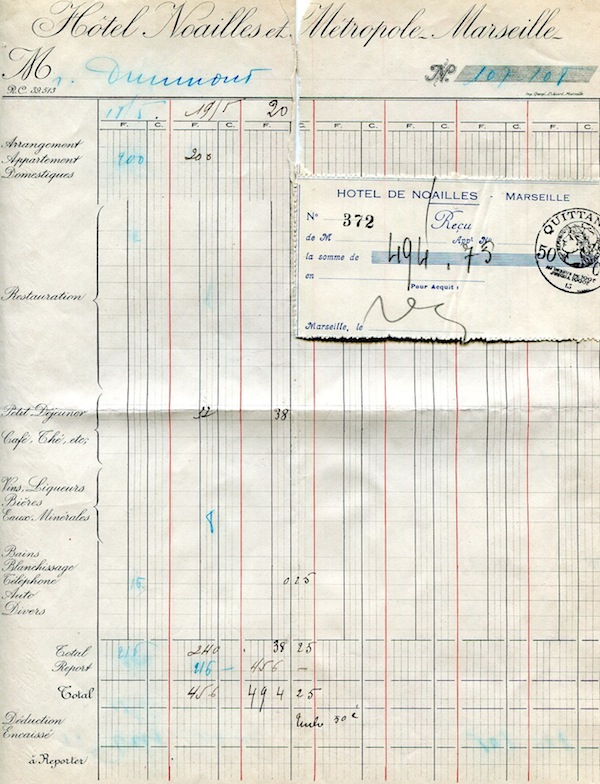 Hôtel Noailles et Métropole Marseille
M r. Drummond
N° 107 108
R.C. 39313
18/5. 19/5 20
F. C. F. C. F. C. F. C. F. C. F. C. F. C.
Arrangement
Appartement 200 200
Domestiques
HOTEL DE NOAILLES - MARSEILLE
N° 372 Reçu
de M Appt No
la somme de 494.75
en
Pour Acquit :
Marseille, le
QUITTANC
50 C
Restauration
Petit Déjeuner 32 38
Café, Thé, etc;
Vins, Liqueurs
Bières
Eaux Minérales 8
Bains
Blanchissage
Téléphone 15. 0 25
Auto
Divers
Total 215 240 38 25
Report 216 – 456 –
Total 456 494 25
Déduction Timb 50 c
Encaissé
à Reporter